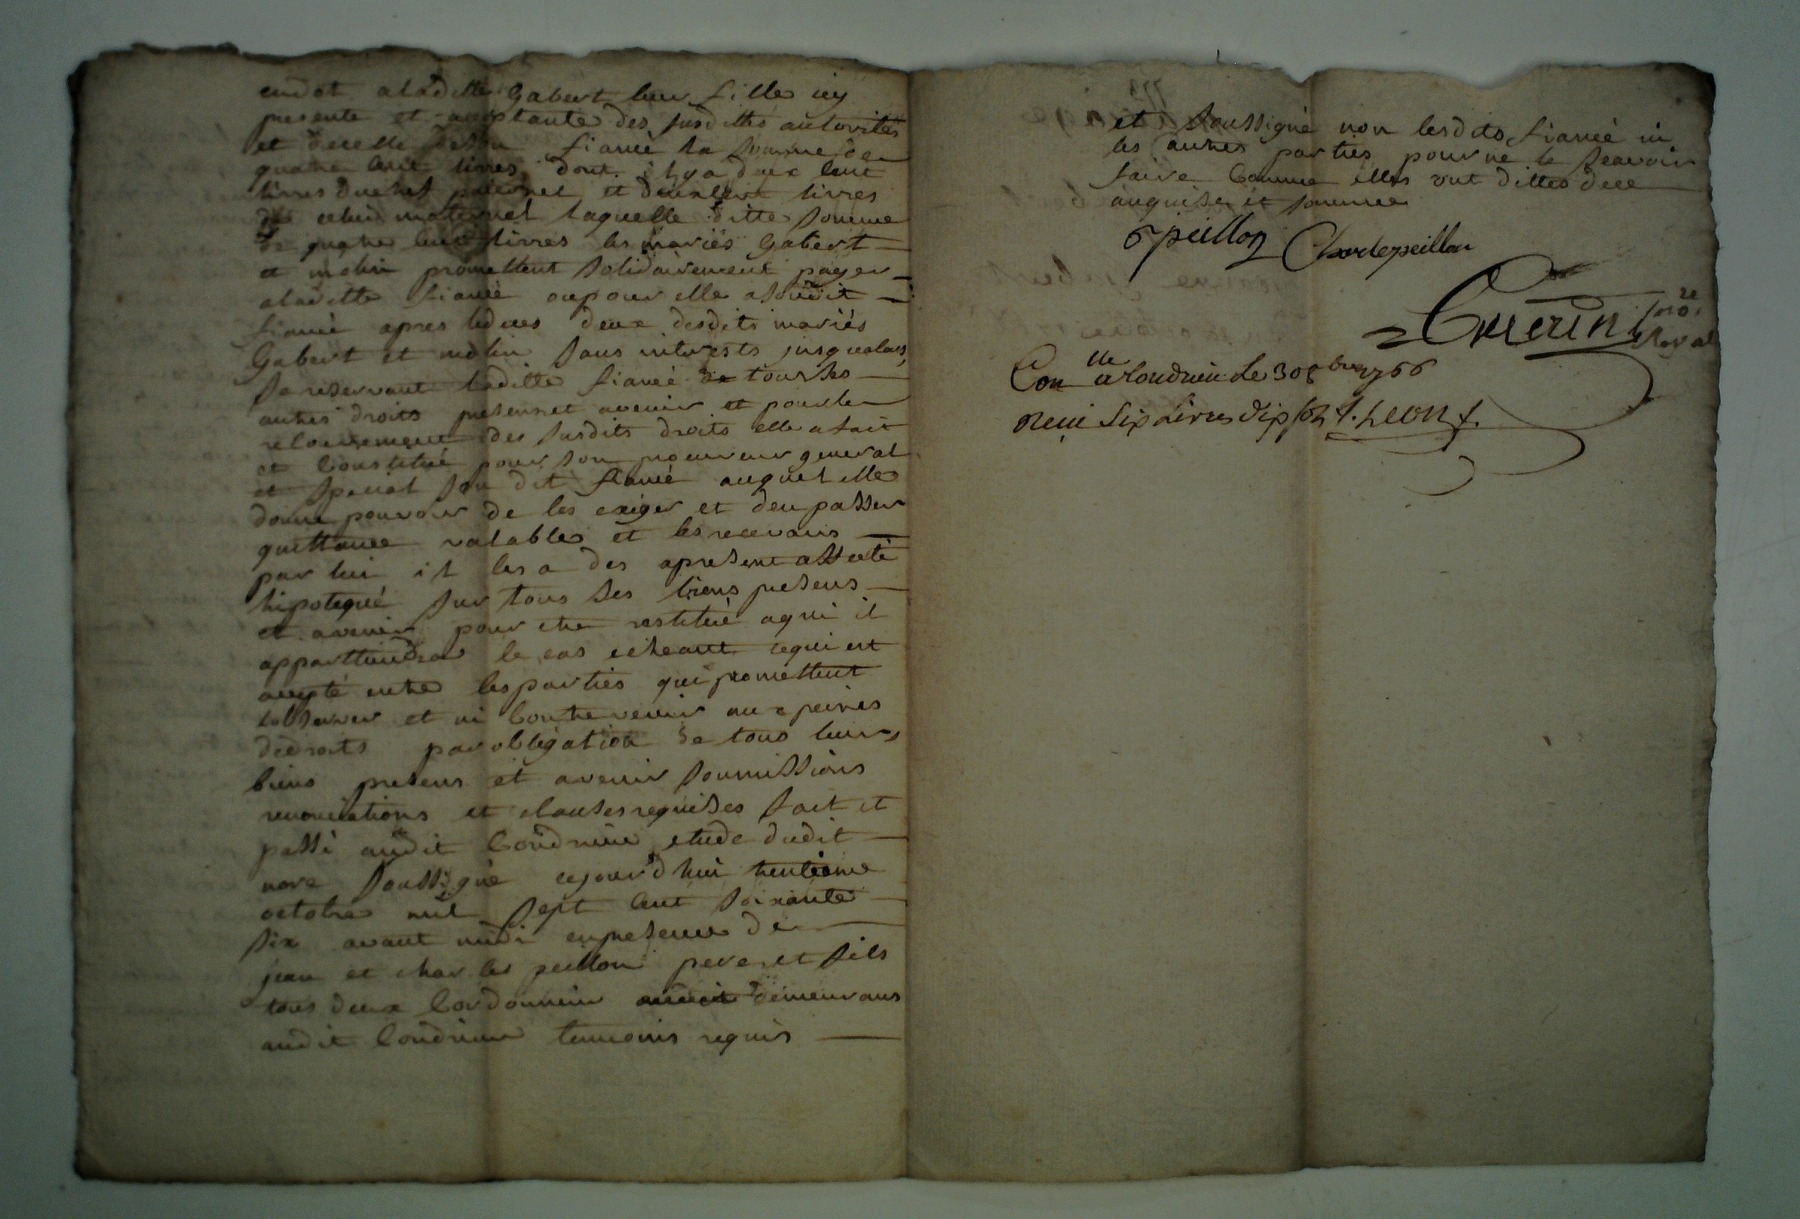 endot aladitte Gabert leur fille icy
presente et acceptante des susdittes autorites
et decelle de son fiancé la somme de
quatre cent livres dont il y a deux cent
livres du chef paternel et deux cent livres
de celui maternel laquelle ditte somme
de quatre cent livres les mariés Gabert
et molin promettent solidairement payer
aladitte fiancé ou pour elle a sondit
fiancé apres le deces deux desdits mariés
Gabert et molin sans interests jusqualors
se reservant laditte fiancé de tous ses
autres droits presens et avenir et pour le
recouvrement des susdits droits elle a fait
et Constitué pour son procureur general
et special son dit fiancé auquel elle
donne pouvoir de les exiger et den passer
quittance valables et les recevans
par lui il les a des apresent assecté
hipotequé sur tous ses biens presens
et avenir pour etre restitué aqui il
appartiendra le cas echeant cequi est
accepté entre les parties qui promettent
lobserver et ni Contrevenir aux peines
dedroits par obligation de tous leurs
biens presens et avenir soumissions
renonciations et clauses requises fait et
passé audit Condrieu etude dudit
nore soussigné cejourdhui trentieme
octobre mil sept cent soixante
six avant midi en presence de
jean et charles peillon pere et fils
tous deux Cordonnier demeurans
audit Condrieu temoins requis
et soussigné non lesdits fiancé ni
les autres parties pour ne le scavoir
faire Comme elles ont dittes dece
enquises et sommee
peillon Charle peillon
Guerin no.re Royal
Con.lle a Condrieu le 30 8bre 1766
Reçu six livres dix sols J. Leont.